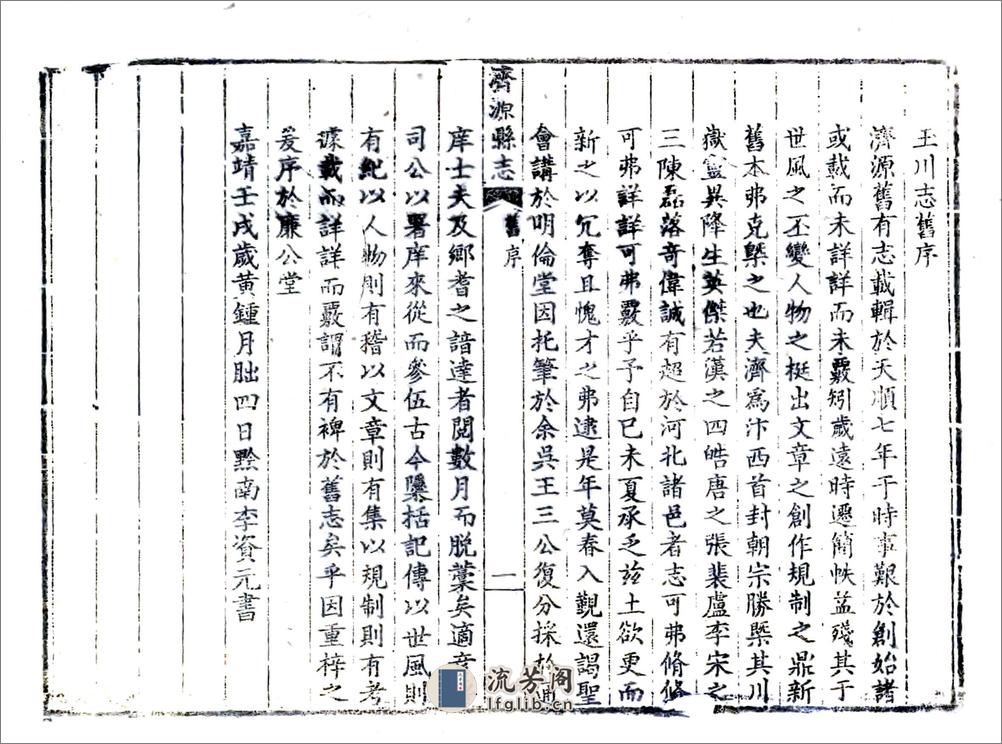 玉川志舊序
濟源舊有志載輯於天順七年于時事艱於創始諸
或載而未詳詳而未覈矧歲遠時遷簡帙益殘其于
世風之丕變人物之挺出文章之創作規制之鼎新
舊本弗克槩之也夫濟爲汴西首封朝宗勝槩其川
嶽靈異降生英傑若漢之四皓唐之張裴盧李宋之
三陳磊落奇偉誠有超於河北諸邑者志可弗脩脩
可弗詳詳可弗覈乎予自己未夏承乏兹土欲更而
新之以冗奪且愧才之弗逮是年莫春入覲還謁聖
會講於明倫堂因托筆於余吳王三公復分採於
濟源縣志
舊序
一
庠士夫及鄉耆之諳達者閱數月而脫藁矣適
司公以署庠來從而參伍古今櫽括記傳以世風則
有紀以人物則有稽以文章則有集以規制則有考
據載而詳詳而覈謂不有裨於舊志矣乎因重梓之
爰序於廉公堂
嘉靖壬戌歲黃鍾月朏四日黔南李資元書
流芳閣
lfglib.cn